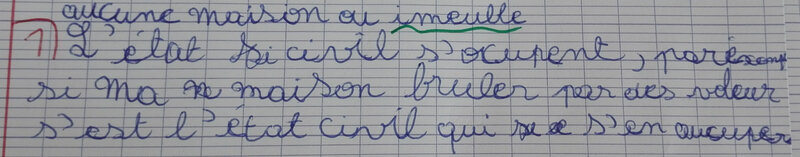 aucune maison ou imeulle
1) L'état si civil s'ocupent, par exemp
si ma maison bruler par des voleur
s'est l'état civil qui se s'en aucuper